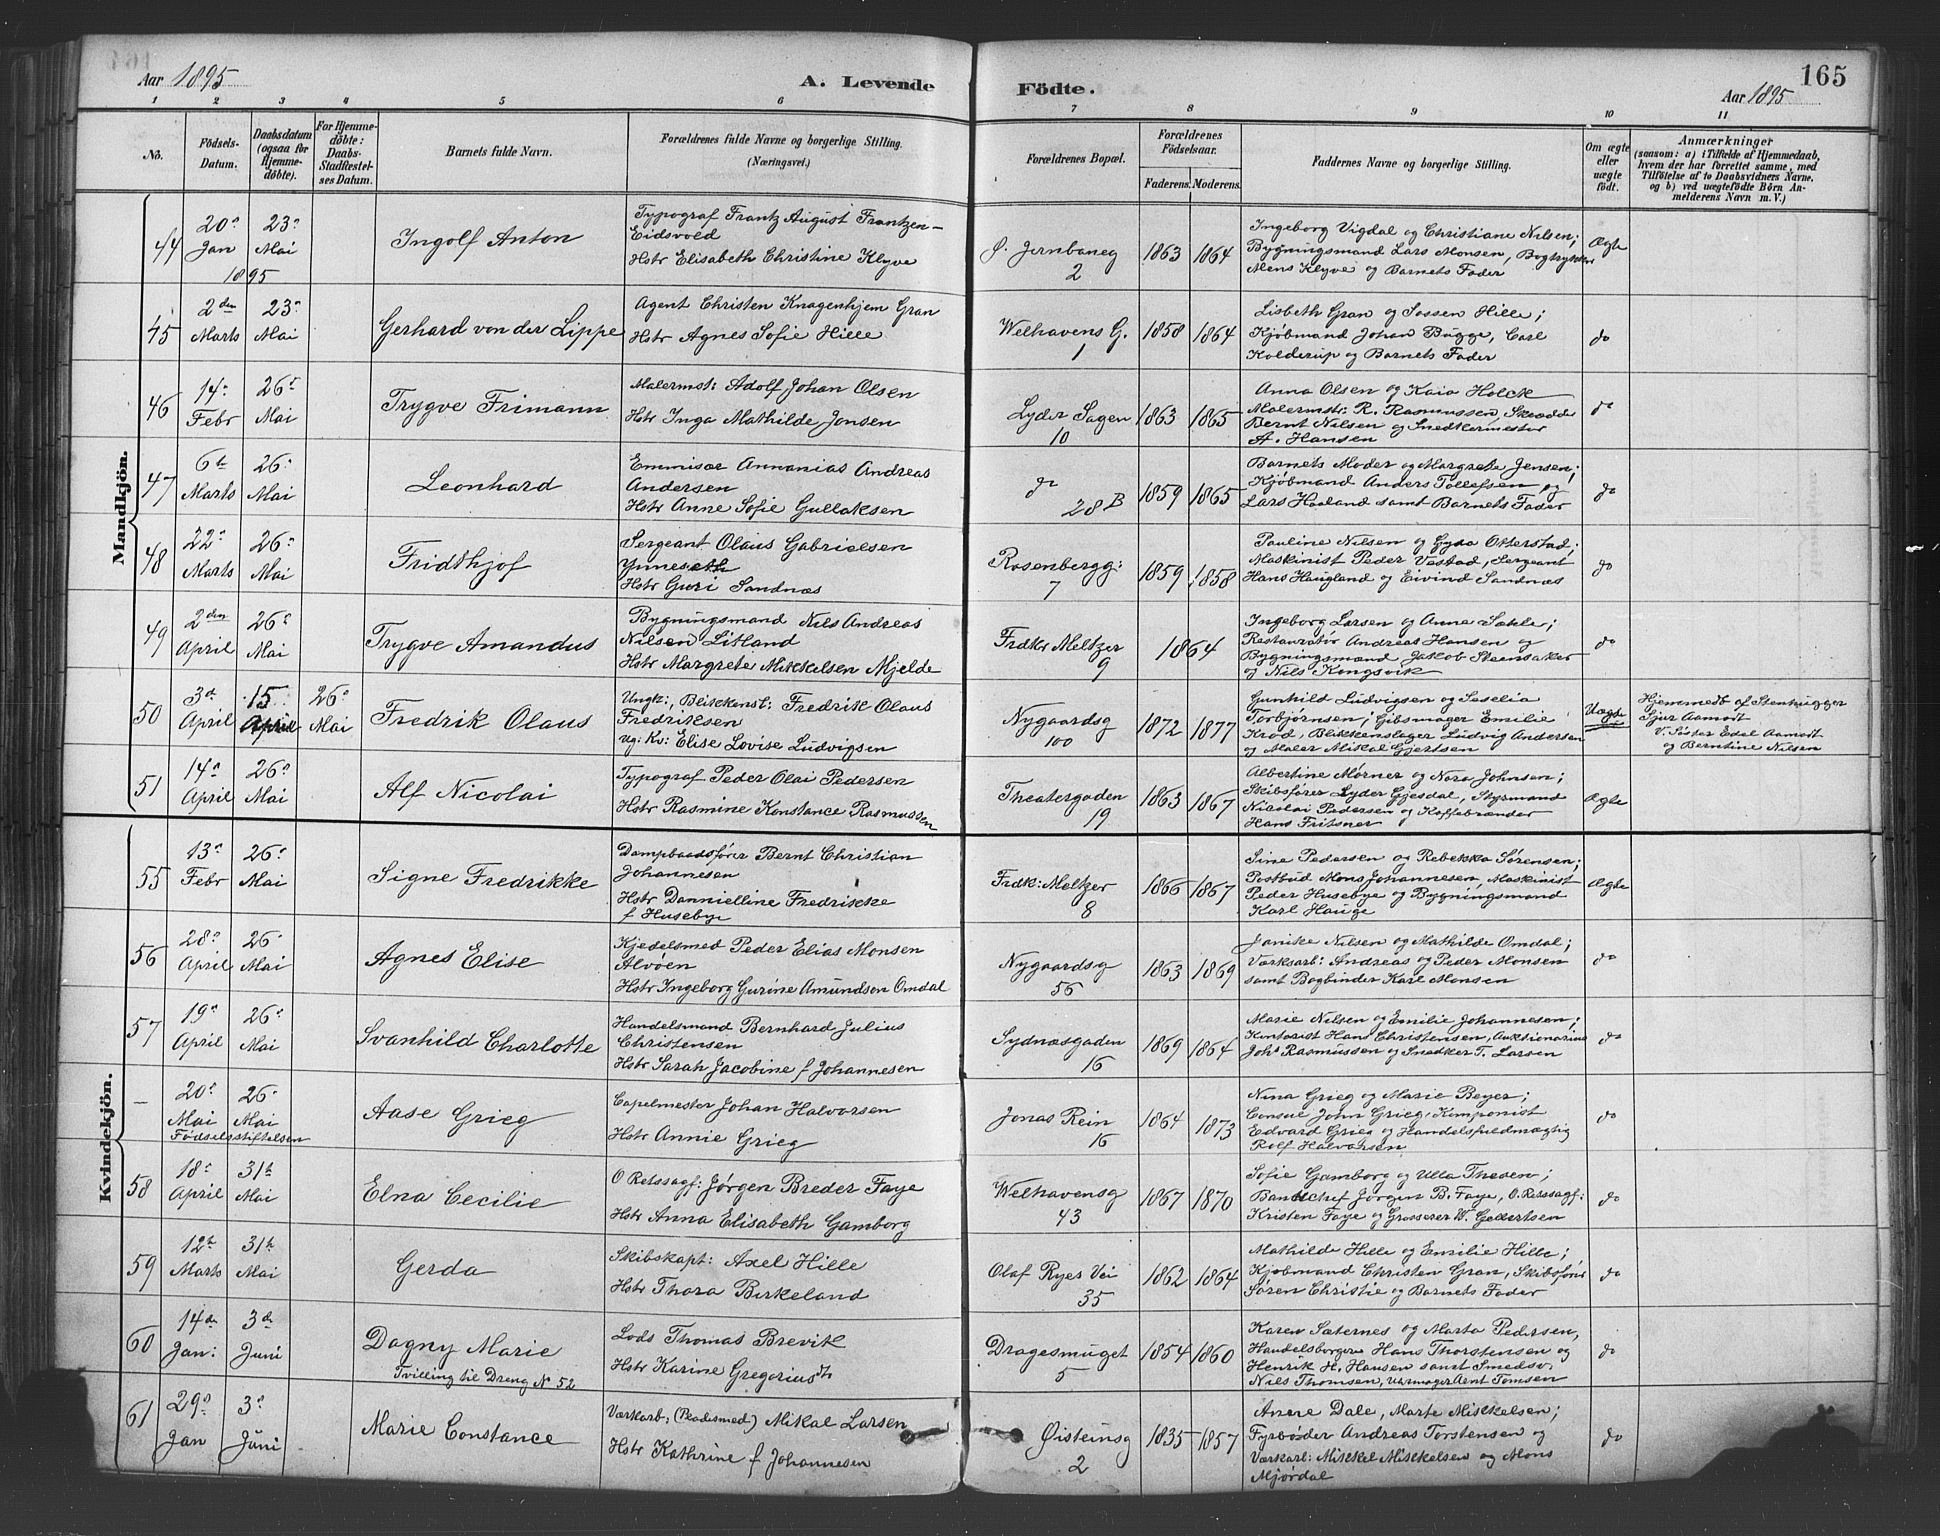 Aar 1895 A. Levende Födte. Aar 1895 165
1 2 3 4 5 6 7 8 9 10 11
No. Födsels-Datum. Daabsdatum (ogsaa for Hjemmedöbte). For Hjemmedöbte: Daabs-Stadfæstelses Datum. Barnets fulde Navn. Forældrenes fulde Navne og borgerlige Stilling. (Næringsvei.) Forældrenes Bopæl. Forældrenes Födselsaar. Faderens. Moderens. Faddernes Navne og borgerlige Stilling. Om ægte eller uægte födt. Anmærkninger (saasom: a) i Tilfælde af Hjemmedaab, hvem der har forrettet samme, med Tilföielse af to Daabsvidners Navne, og b) ved uægtefödte Börn Anmelderens Navn m. V.)
Mandkjön.
44 20. Jan 1895 23. Mai Ingolf Anton
Typograf Frantz August Frantzen-
Eidsvold
Hstr Elisabeth Christine Klyve
Ø. Jernbaneg 2 1863 1864
Ingeborg Vigdal og Christiane Nilsen;
Bygningsmand Lars Monsen, Bogtrykker
Mens Klyve og Barnets Fader
Ægte
45 2den Marts 23. Mai Gerhard von der Lippe
Agent Christen Knagenhjem Gran
Hstr Agnes Sofie Hille
Welhavens G. 1 1858 1864
Lisbeth Gran og Sossen Hille;
Kjøbmand Johan Bügge, Carl
Kolderup og Barnets Fader
do
46 14. Febr 26. Mai Trygve Frimann
Malermst: Adolf Johan Olsen
Hstr Inga Mathilde Jonsen
Lyder Sagen 10 1863 1865
Anna Olsen og Kaia Holck
Malermstr: R. Rasmussen, Skrædder
Bernt Nilsen og Snedkermester
A. Hansen
do
47 6te Marts 26. Mai Leonhard
Emmisær Annanias Andreas
Andersen
Hstr Anne Sofie Gullaksen
do 28 B 1859 1865
Barnets Moder og Margrete Jensen;
Kjøbmand Anders Tollefsen og
Lars Haaland samt Barnets Fader
do
48 22. Marts 26. Mai Fridthjof
Sergeant Olaus Gabrielsen
Ynneseth
Hstr Guri Sandnæs
Rosenbergg: 7 1859 1858
Pauline Nilsen og Gyda Otterstad;
Maskinist Peder Vestad, Sergeant
Hans Haugland og Eivind Sandnæs
do
49 2den April 26. Mai Trygve Amandus
Bygningsmand Nils Andreas
Nilsen Litland
Hstr Margrete Mikkelsen Mjelde
Frdkr Meltzer 9 1864
Ingeborg Larsen og Anna Sæhle;
Restauratør Andreas Hansen og
Bygningsmand Jakob Steensaker
og Nils Kongsvik
do
50 3d April 15 April 26. Mai Fredrik Olaus
Ungk:, Blikkenst: Fredrik Olaus
Fredriksen
ug: Kv: Elise Lovise Ludvigsen
Nygaardsg 100 1872 1877
Gunhild Ludvigsen og Seselia
Torbjørnsen; Gibsmager Emilie
Krod, Blikkenslager Ludvig Andersen
og Maler Mikal Gjertsen
Uægte
Hjemmedb af Stenhugger
Sjur Aamodt
V. Søster Edel Aamodt
og Berntine Nilsen
51 14. April 26. Mai Alf Nicolai
Typograf Peder Olai Pedersen
Hstr Rasmine Konstance Rasmussen
Theatergaden 19 1863 1867
Albertine Mørner og Nora Johnsen;
Skibsfører Lyder Gjesdal, Styrmand
Nicolai Pedersen og Kaffebrænder
Hans Fritsner
Ægte
Kvindekjön.
55 13. Febr 26. Mai Signe Fredrikke
Dampbaadsfører Bernt Christian
Johannesen
Hstr Dannielline Fredrikke
f Husebye
Frdk: Meltzer 8 1866 1867
Sine Pedersen og Rebekka Sørensen;
Postbud Mons Johannesen, Maskinist
Peder Husebye og Bygningsmand
Karl Hauge
Ægte
56 28. April 26. Mai Agnes Elise
Kjedelsmed Peder Elias Monsen
Alvøen
Hstr Ingeborg Gurine Amundsen Omdal
Nygaardsg 55 1863 1869
Janike Nilsen og Mathilde Omdal;
Værksarb: Andreas og Peder Monsen
samt Bogbinder Karl Monsen
do
57 19. April 26. Mai Svanhild Charlotte
Handelsmand Bernhard Julius
Christensen
Hstr Sarah Jacobine f Johannesen
Sydnæsgaden 16 1869 1864
Marie Nilsen og Emilie Johannesen;
Kontorist Hans Christensen, Auktionarius
Johs Rasmussen og Snedker T. Larsen
do
– 20. Mai 26. Mai Aase Grieg
Födselsstiftelsen
Capelmester Johan Halvorsen
Hstr Annie Grieg
Jonas Rein 16 1864 1873
Nina Grieg og Marie Beyer;
Consul John Grieg, Komponist
Edvard Grieg og Handelsfuldmægtig
Rolf Halvorsen
do
58 18. April 31te Mai Elna Cecilie
O Retssagf: Jørgen Breder Faye
Hstr Anna Elisabeth Gamborg
Welhavensg 43 1867 1870
Sofie Gamborg og Ulla Thesen;
Bankchef Jørgen B. Faye, O. Retssagf:
Kristen Faye og Grosserer W. Gellertsen
do
59 12te Marts 31te Mai Gerda
Skibskapt: Axel Hille
Hstr Thora Birkeland
Olaf Ryes Vei 35 1862 1864
Mathilde Hille og Emilie Hille;
Kjøbmand Christen Gran, Skibsfører
Søren Christie og Barnets Fader
do
60 14de Jan: 3de Juni Dagny Marie
Tvilling til Dreng N 52
Lods Thomas Brevik
Hstr Karine Gregoriusdt
Dragesmuget 5 1854 1860
Karen Sæternes og Marta Pedersen,
Handelsborger Hans Thorstensen og
Henrik H. Hansen samt Smedsv.
Nils Thomsen, Uhrmager Arnt Tomsen
do
61 29. Jan 3. Juni Marie Constance
Værkarb: (Pladesmed) Mikal Larsen
Hstr Kathrine f Johannesen
Øisteinsg 2 1835 1857
Anne Dale, Marte Mikkelsen;
Fyrbøder Andreas Torstensen og
Værkarb: Mikkel Mikkelsen og Mons
Mjørdal
do